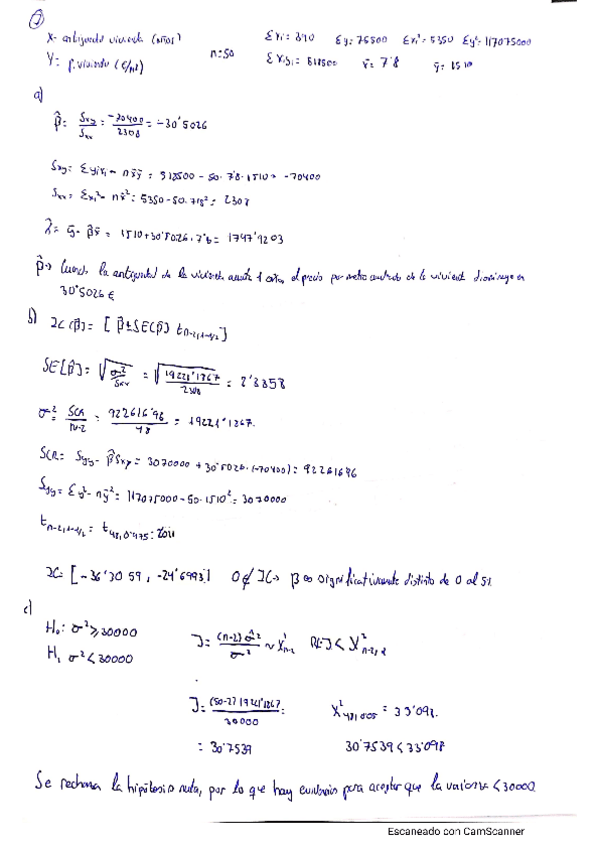 ①
X- antigüedad vivienda (años)
Y: p. vivienda (€/m²)
n=50
Σxi = 390 Σyi = 75500 Σxi² = 5350 Σyi² = 117075000
Σxiyi = 518500 x̄ = 7'8 ȳ = 1510
a)
β̂ = Sxy/Sxx = -70400/2308 = -30'5026
Sxy = Σyixi - nx̄ȳ = 518500 - 50·7'8·1510 = -70400
Sxx = Σxi² - nx̄² = 5350 - 50·7'8² = 2308
α̂ = ȳ - β̂x̄ = 1510 + 30'5026·7'8 = 1747'9203
β̂ → Cuando la antigüedad de la vivienda aumenta 1 año, el precio por metro cuadrado de la vivienda disminuye en
30'5026 €
b) IC(β) = [β̂ ± SE(β̂) t n-2,1-α/2]
SE[β̂] = √(σ̂²/Sxx) = √(19221'1867/2308) = 2'8858
σ̂² = SCR/n-2 = 922616'96/48 = 19221'1867.
SCR = Syy - β̂Sxy = 3070000 + 30'5026·(-70400) = 922616'96
Syy = Σy² - nȳ² = 117075000 - 50·1510² = 3070000
t n-2,1-α/2 = t 48,0'975 =
IC = [-36'3059, -24'6993] 0 ∉ IC → β es significativamente distinto de 0 al 5%
c)
H₀: σ² ≥ 30000
H₁ σ² < 30000
J = (n-2)σ̂²/σ² ~ χ² n-2 RC: J < χ² n-2,α
J = (50-2)19221'1867/30000 =
χ² 48,0'05 = 33'098.
= 30'7539 30'7539 < 33'098
Se rechaza la hipótesis nula, por lo que hay evidencias para aceptar que la varianza < 30000
Escaneado con CamScanner